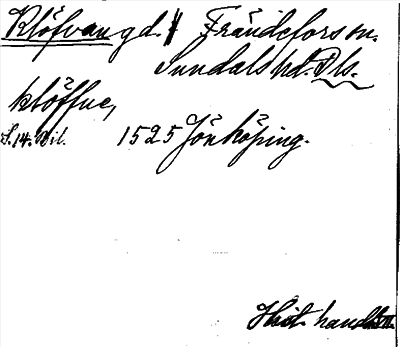 Klöfvan gd. Frändefors sn.
Sundals hd. Dls.
klöffue,
S. 14. Bil. 1525 Jönköping.
Hist. handl.